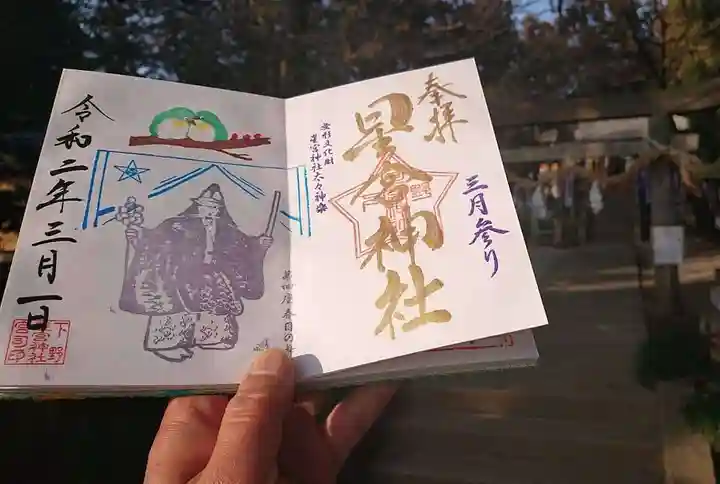 奉拝
星宮神社
三月参り
無形文化財
星宮神社太々神楽
令和二年三月一日
下野
星宮神社
宮司印